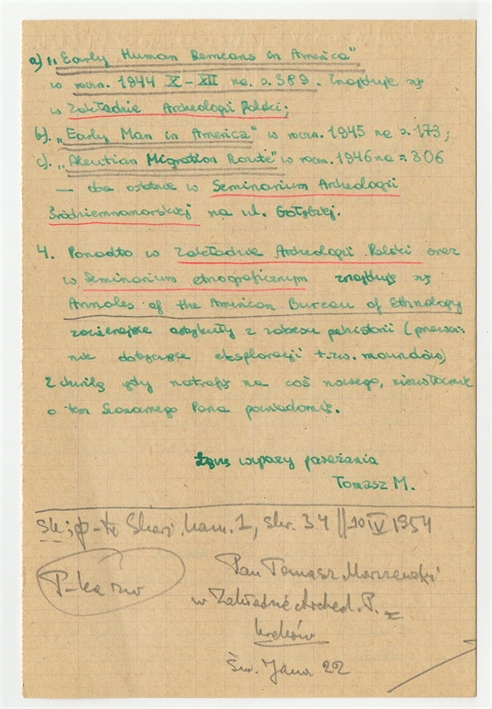 a) „Early Human Remeans in America"
w roczn. 1944 X – XII na s. 389. Znajduje się
w Zakładzie Archeologii Polski;
b) „Early Man in America" w roczn. 1945 na s. 173;
c) „Aleutian Migration Route" w roczn. 1946 na s. 306
— oba ostatnie w Seminarium Archeologii
Śródziemnomorskiej na ul. Gołębiej.
4. Ponadto w Zakładzie Archeologii Polski oraz
w Seminarium etnograficznym znajdują się
Annales of the American Bureau of Ethnology
zawierające artykuły z zakresu prehistorii (przeważ-
nie dotyczące eksploracji t.zw. moundów)
Z chwilą gdy natrafię na coś nowego, niezwłocznie
o tem Szanownego Pana powiadomię.
Łączę wyrazy poważania
Tomasz M.
str. 34 || 10 IV 1954
Pan Tomasz Marszewski
w Zakładzie Archeol. P.
Kraków
Św. Jana 22